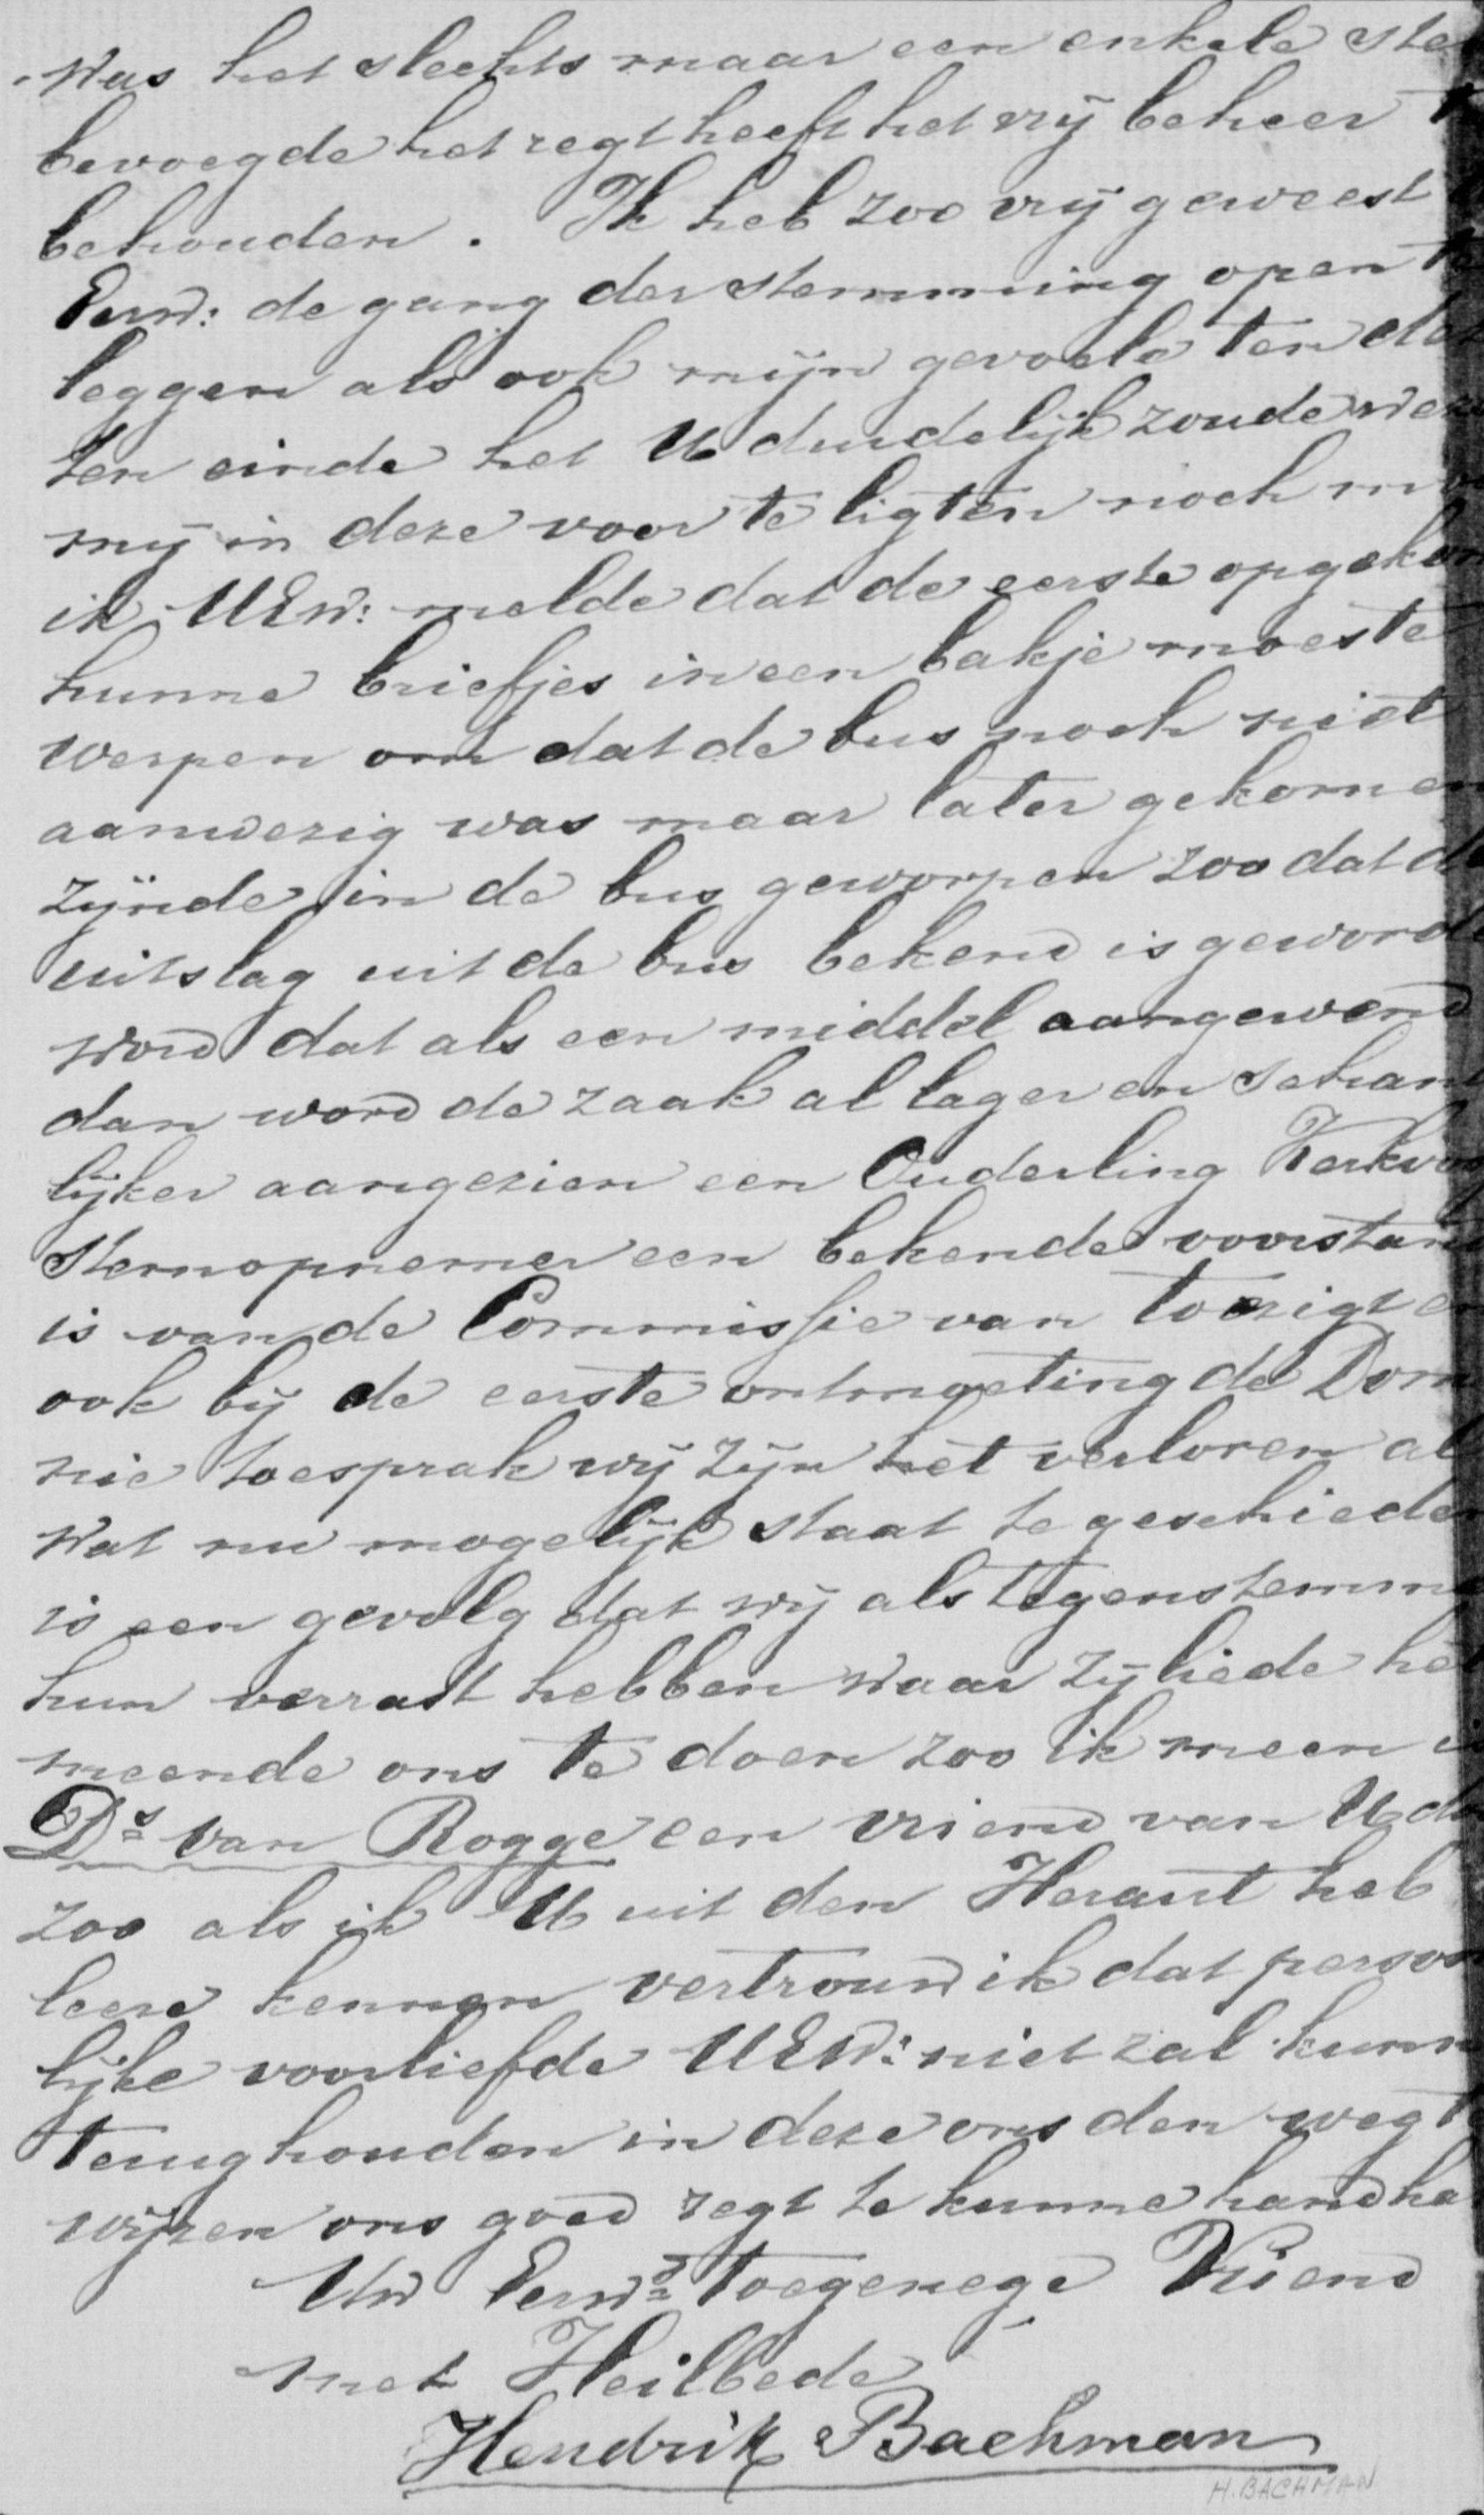 Was het slechts maar een enkele ste
bevoegde het regt heeft het vrij beheer t
behouden. Ik heb zoo vrij geweest
Eerw: de gang der stemming open te
leggen als ook mijn gevoele ten
ten einde het U duidelijk zoude we
mij in deze voor te ligten noch m
ik UEW: melde dat de eerste opgekom
hunne briefjes in een bakje moeste
werpen om dat de bus noch niet
aanwezig was maar later gekomen
zijnde in de bus geworpen zoo dat de
uitslag uit de bus bekend is geworde
word dat als een middel aangewend
dan word de zaak al lager en schan
lijker aangezien een Ouderling Kerkvo
Stemopnemer een bekende voorstan
is van de Commissie van toezigt e
ook bij de eerste ontmoeting de Dom
nie toesprak wij zijn het verloren al
wat nu mogelijk staat te geschieden
is een gevolg dat wij als tegenstemm
hun verrast hebben waar zij liede het
meende ons te doen zoo ik meen i
Ds van Rogge een vriend van U d
zoo als ik U uit den Heraut heb
leere kennen vertrouw ik dat perso
lijke voorliefde UEW: niet zal kunn
terughouden in deze ons den weg t
wijzen ons goed regt te kunne handha
Uw Eerws toegenege Vriend
met Heilbede
Hendrik Bachman
H. BACHMAN